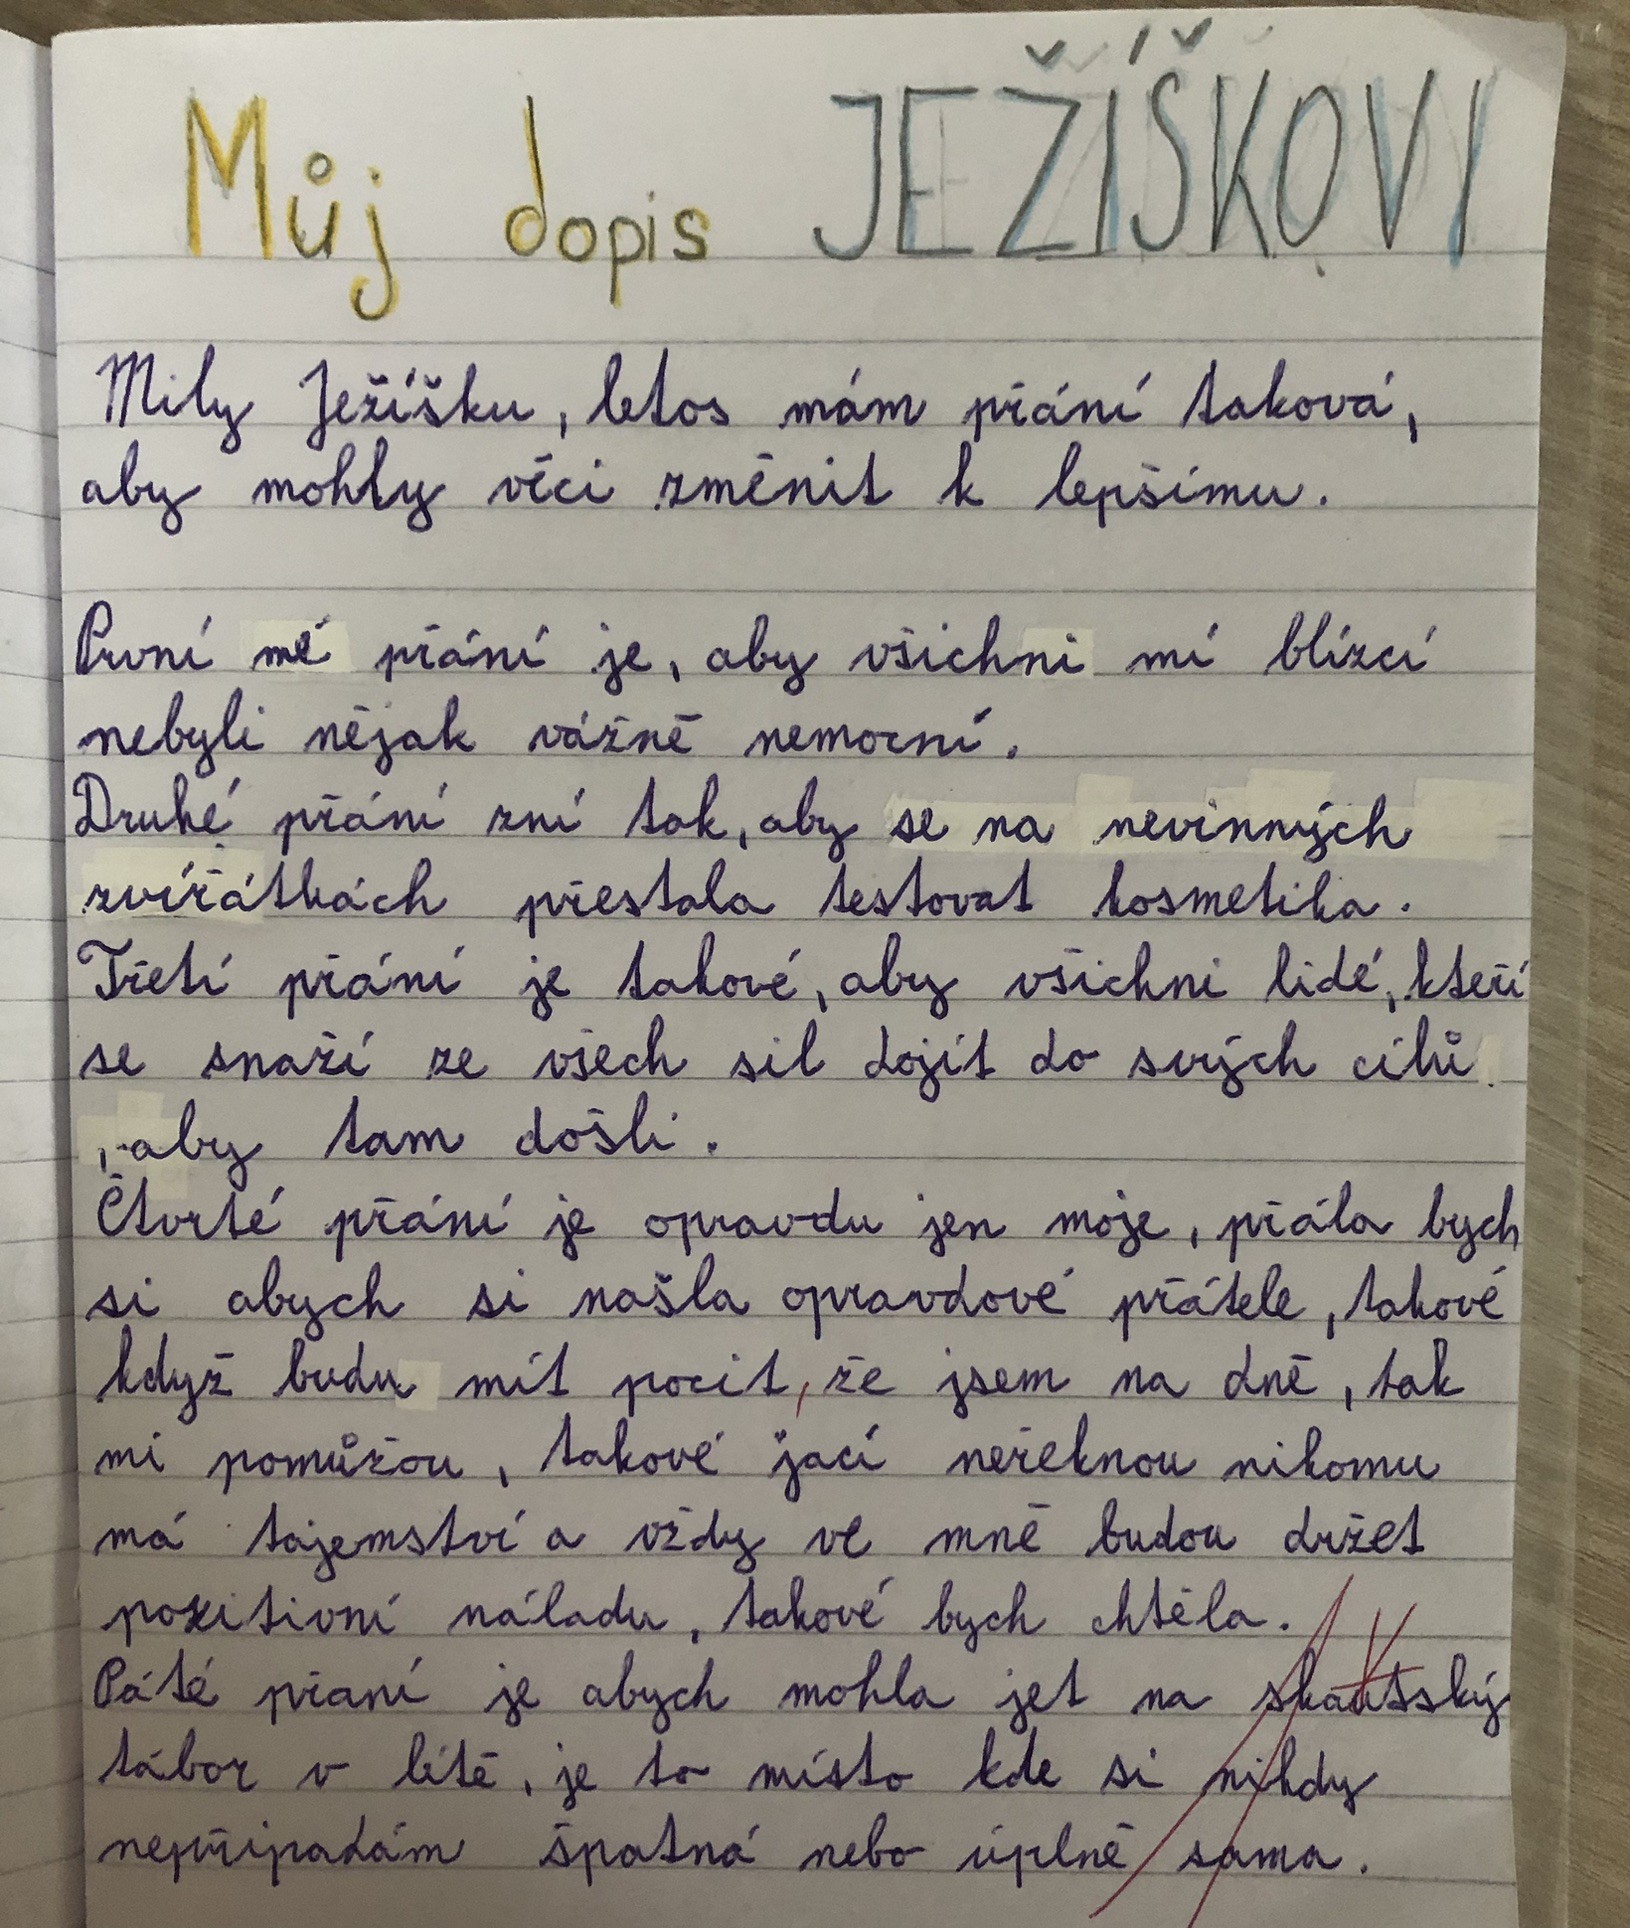 Můj dopis JEŽÍŠKOVI
Milý Ježíšku, letos mám přání taková,
aby mohly věci změnit k lepšímu.
První mé přání je, aby všichni mí blízcí
nebyli nějak vážně nemocní.
Druhé přání zní tak, aby se na nevinných
zvířátkách přestala testovat kosmetika.
Třetí přání je takové, aby všichni lidé, kteří
se snaží ze všech sil dojít do svých cílů
, aby tam došli.
Čtvrté přání je opravdu jen moje, přála bych
si abych si našla opravdové přátele, takové
když budu mít pocit, že jsem na dně, tak
mi pomůžou, takové jací neřeknou nikomu
má tajemství a vždy ve mně budou držet
pozitivní náladu, takové bych chtěla.
Páté přaní je abych mohla jet na skautský
tábor v létě, je to místo kde si nikdy
nepřipadám špatná nebo úplně sama.